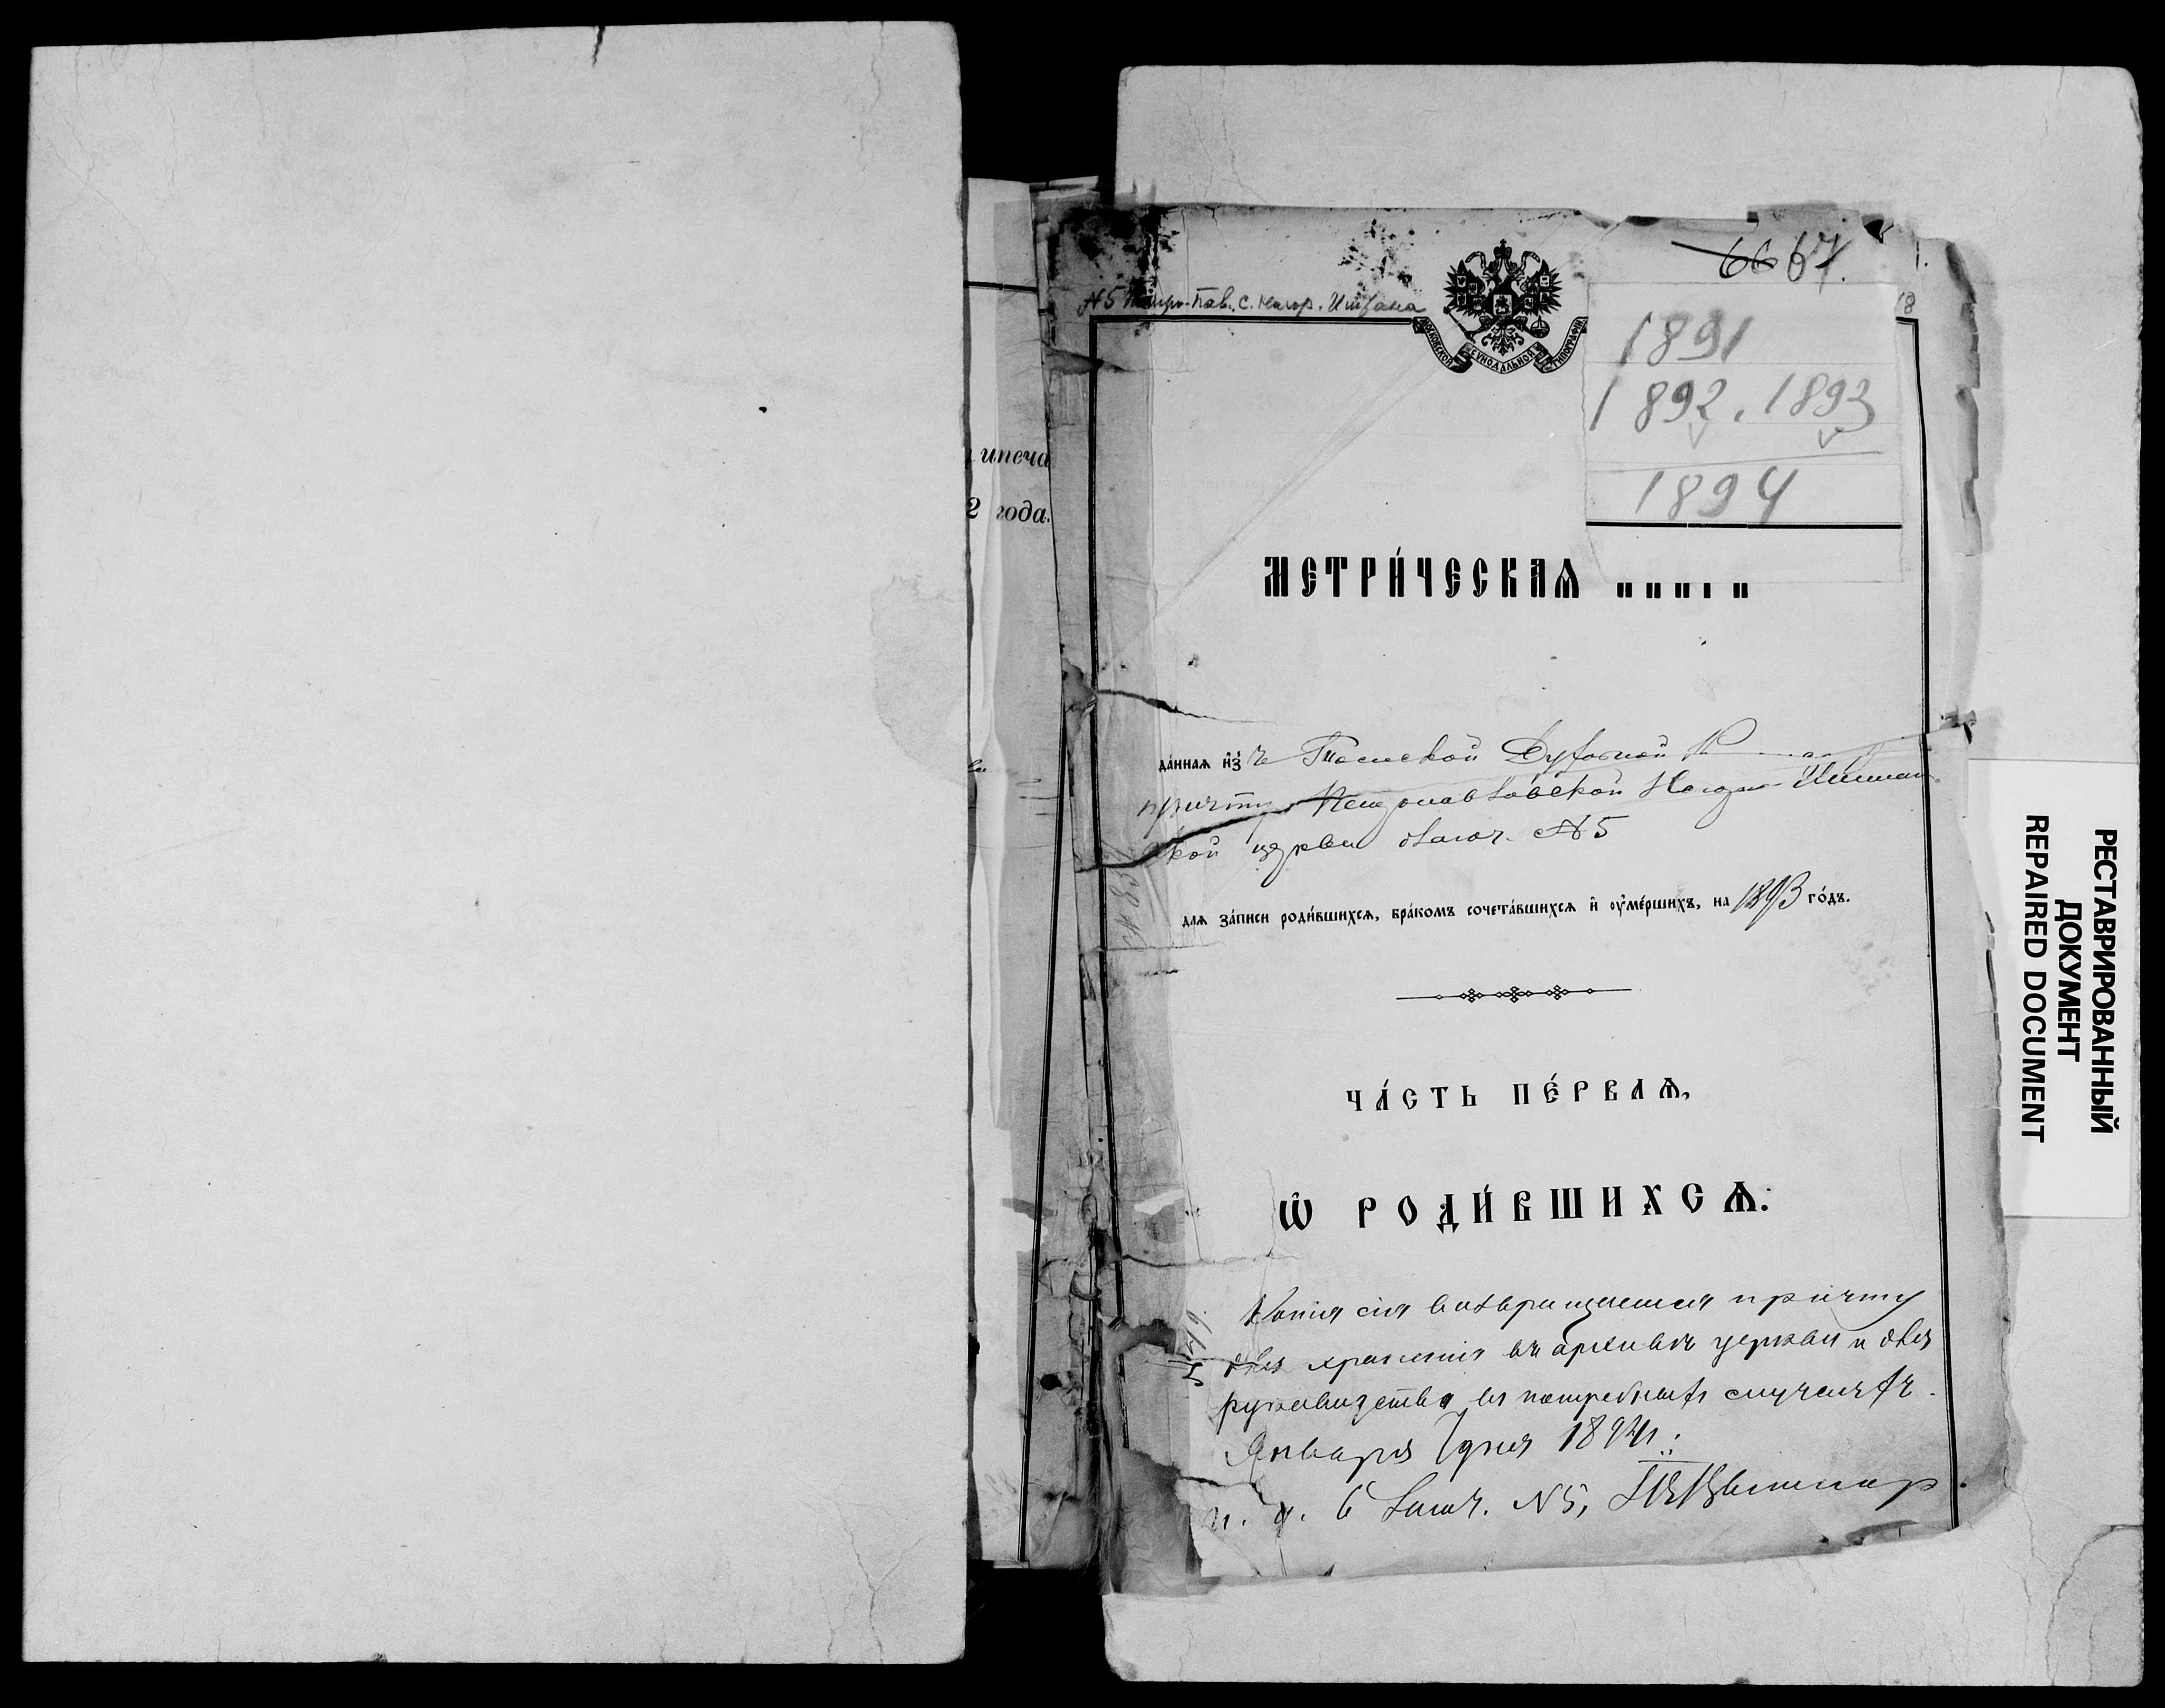 ипеча
2 года.
6667.
№5 Петро-Пав. с. Нагор. Иштана
МОСКОВСКОЙ СѴНОДАЛЬНОЙ ТИПОГРАФІИ
18
1891
1892. 1893
1894
МЕТРИ́ЧЕСКАѦ
да́ннаѧ и҆з̾ Томской Духовной
причту Петропавловской Нагорно-Иштан
ской церкви благоч. №5
длѧ за́писи роди́вшихсѧ, бра́комъ сочета́вшихсѧ и҆ ѹ҆ме́ршихъ, на 1893 го́дъ.
ЧА́СТЬ ПЕ́РВАѦ,
Ѡ҆ РОДИ́ВШИХСѦ.
Копія сія возвращается причту
для храненія въ архивѣ церкви и для
руководства въ потребныхъ случаяхъ.
Января 7 дня 1894 г.
и. д. благоч. №5,
РЕСТАВРИРОВАННЫЙ
ДОКУМЕНТ
REPAIRED DOCUMENT